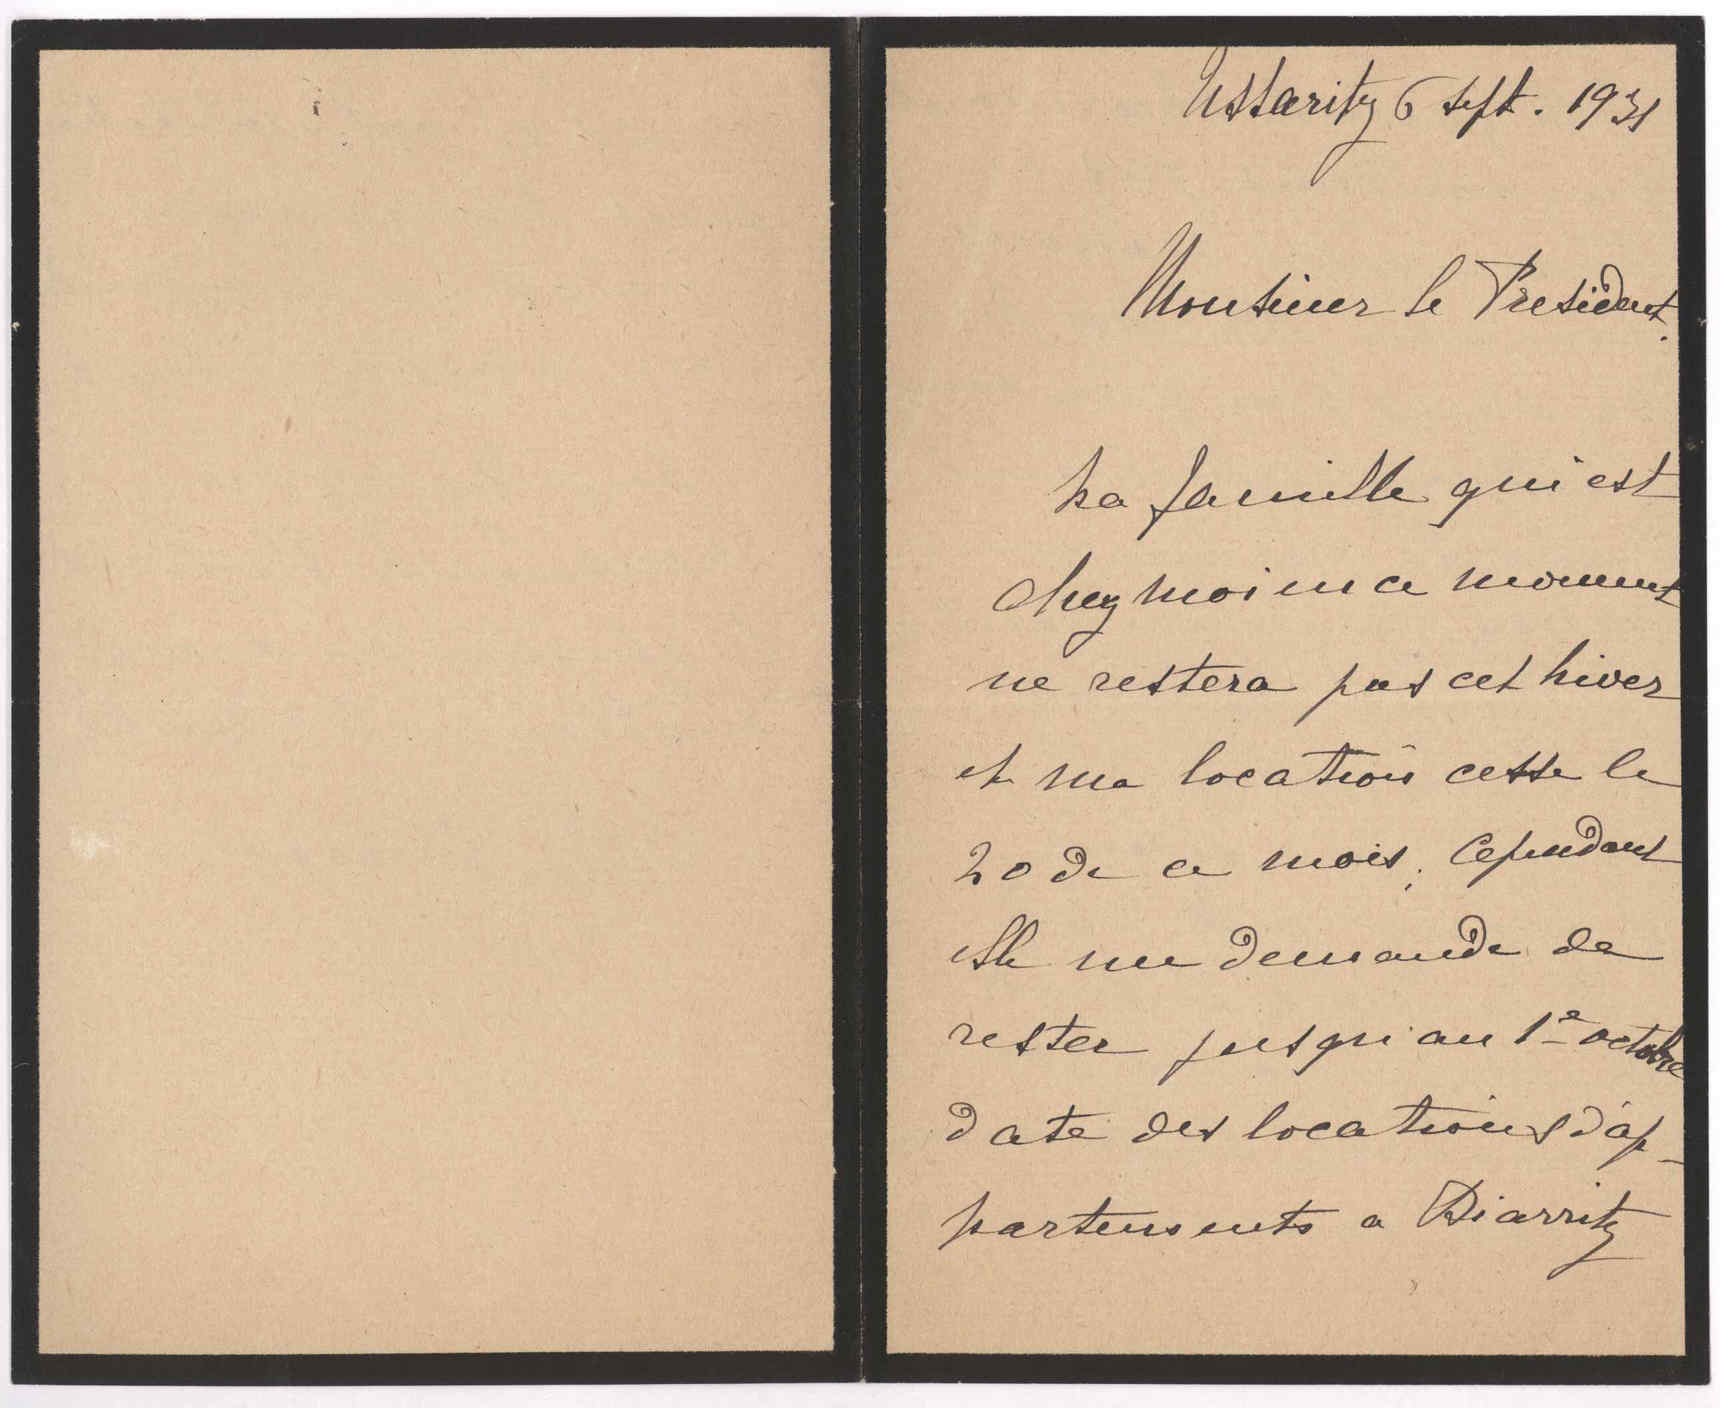 Ustaritz 6 sept. 1931
Monsieur le President.
La famille qui est
chez moi en ce moment
ne restera pas cet hiver
et ma location cesse le
20 de ce mois. Cependant
elle me demande de
rester jusqu'au 1e octobre
date des locations d'ap-
partements a Biarritz